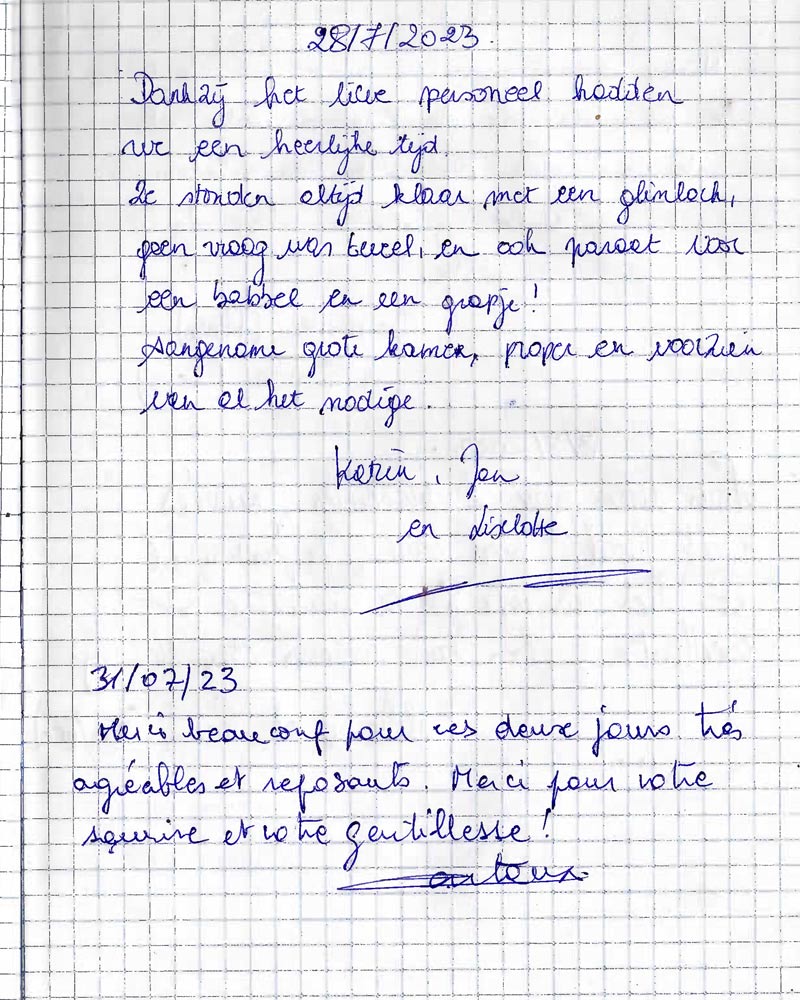 28/7/2023.
Dankzij het lieve personeel hadden
we een heerlijke tijd.
Ze stonden altijd klaar met een glimlach,
geen vraag was teveel, en ook paraat voor
een babbel en een grapje!
Aangename grote kamer, proper en voorzien
van al het nodige.
Karin, Jan
en Liselotte
31/07/23
Merci beaucoup pour ces deux jours très
agréables et reposants. Merci pour votre
sourire et votre gentillesse!